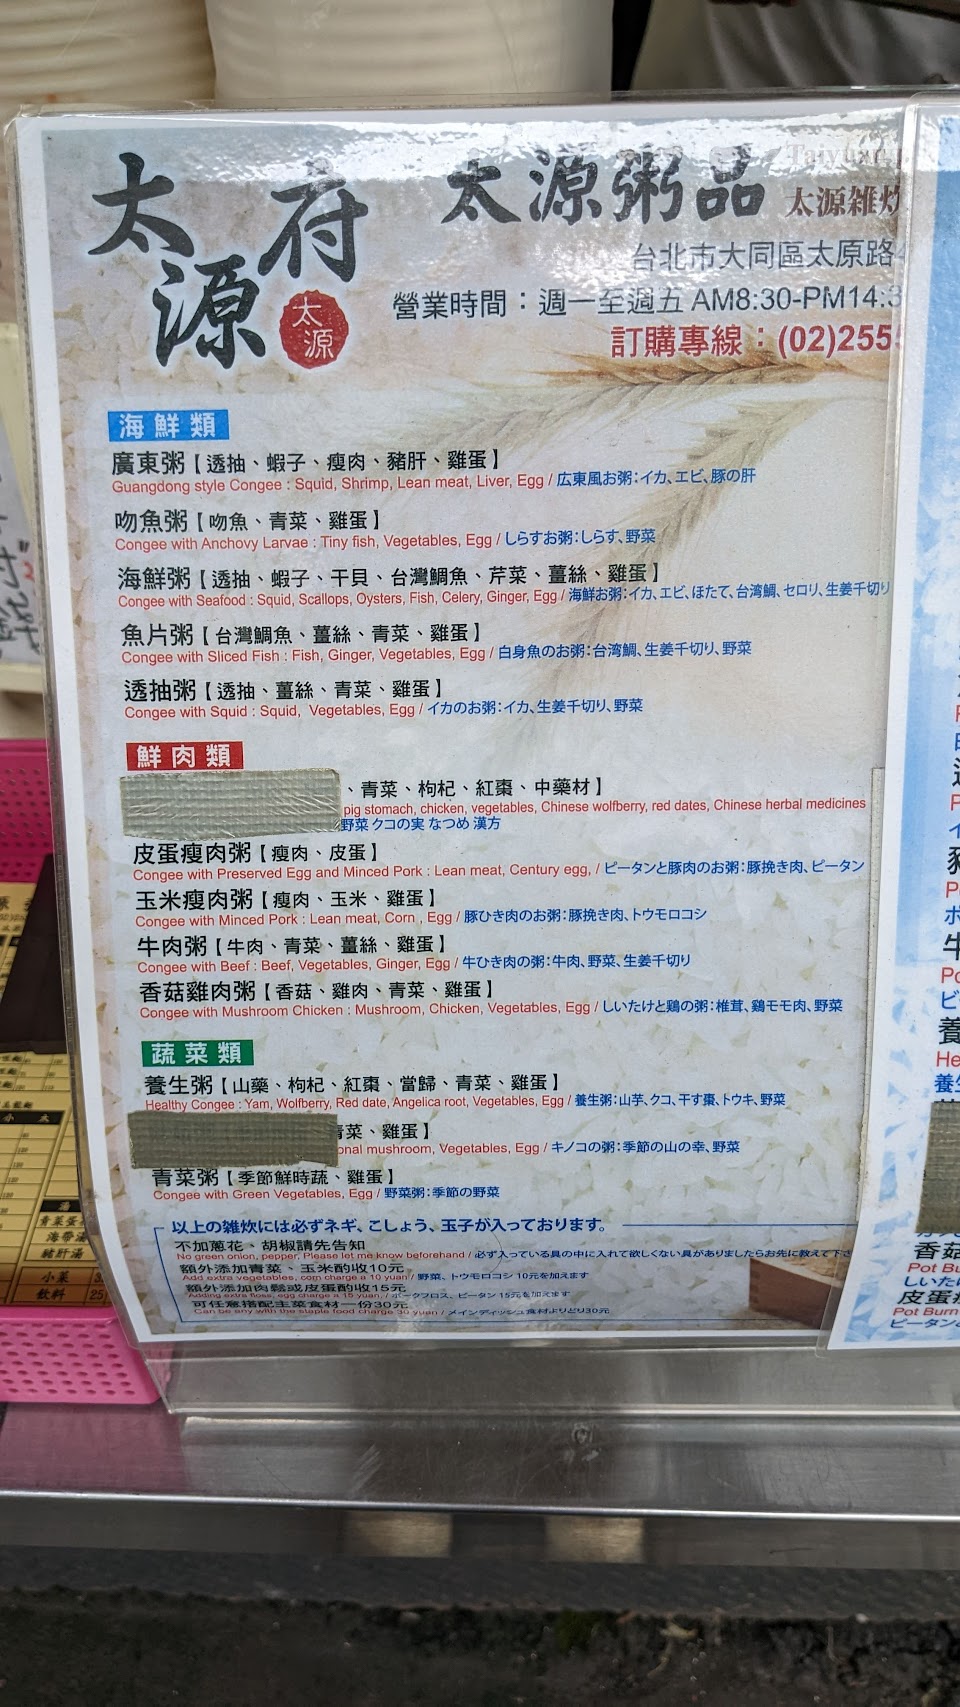 太源府
太源
太源粥品
Taiyuan
太源雑炊
台北市大同區太原路
營業時間：週一至週五 AM8:30-PM14:3
訂購專線：(02)255
海鮮類
廣東粥【透抽、蝦子、瘦肉、豬肝、雞蛋】
Guangdong style Congee : Squid, Shrimp, Lean meat, Liver, Egg / 広東風お粥:イカ、エビ、豚の肝
吻魚粥【吻魚、青菜、雞蛋】
Congee with Anchovy Larvae : Tiny fish, Vegetables, Egg / しらすお粥:しらす、野菜
海鮮粥【透抽、蝦子、干貝、台灣鯛魚、芹菜、薑絲、雞蛋】
Congee with Seafood : Squid, Scallops, Oysters, Fish, Celery, Ginger, Egg / 海鮮お粥:イカ、エビ、ほたて、台湾鯛、セロリ、生姜千切り
魚片粥【台灣鯛魚、薑絲、青菜、雞蛋】
Congee with Sliced Fish : Fish, Ginger, Vegetables, Egg / 白身魚のお粥:台湾鯛、生姜千切り、野菜
透抽粥【透抽、薑絲、青菜、雞蛋】
Congee with Squid : Squid, Vegetables, Egg / イカのお粥:イカ、生姜千切り、野菜
鮮肉類
、青菜、枸杞、紅棗、中藥材】
pig stomach, chicken, vegetables, Chinese wolfberry, red dates, Chinese herbal medicines
野菜 クコの実 なつめ 漢方
皮蛋瘦肉粥【瘦肉、皮蛋】
Congee with Preserved Egg and Minced Pork : Lean meat, Century egg, / ピータンと豚肉のお粥:豚挽き肉、ピータン
玉米瘦肉粥【瘦肉、玉米、雞蛋】
Congee with Minced Pork : Lean meat, Corn , Egg / 豚ひき肉のお粥:豚挽き肉、トウモロコシ
牛肉粥【牛肉、青菜、薑絲、雞蛋】
Congee with Beef : Beef, Vegetables, Ginger, Egg / 牛ひき肉の粥:牛肉、野菜、生姜千切り
香菇雞肉粥【香菇、雞肉、青菜、雞蛋】
Congee with Mushroom Chicken : Mushroom, Chicken, Vegetables, Egg / しいたけと鶏の粥:椎茸、鶏モモ肉、野菜
蔬菜類
養生粥【山藥、枸杞、紅棗、當歸、青菜、雞蛋】
Healthy Congee : Yam, Wolfberry, Red date, Angelica root, Vegetables, Egg / 養生粥:山芋、クコ、干す棗、トウキ、野菜
青菜、雞蛋】
onal mushroom, Vegetables, Egg / キノコの粥:季節の山の幸、野菜
青菜粥【季節鮮時蔬、雞蛋】
Congee with Green Vegetables, Egg / 野菜粥:季節の野菜
以上の雑炊には必ずネギ、こしょう、玉子が入っております。
不加蔥花、胡椒請先告知
No green onion, pepper, Please let me know beforehand / 必ず入っている具の中に入れて欲しくない具がありましたらお先に教えて下さ
額外添加青菜、玉米酌收10元
Add extra vegetables, corn charge a 10 yuan / 野菜、トウモロコシ 10元を加えます
額外添加肉鬆或皮蛋酌收15元
Adding extra floss, egg charge a 15 yuan, / ポークフロス、ピータン 15元を加えます
可任意搭配主菜食材一份30元
Can be any with the staple food charge 30 yuan / メインディッシュ食材よりどり30元
牛
Po
ビ
養
He
養生
香菇
Pot Bu
しいた
皮蛋
Pot Burn
ピータン
小 大
湯
青菜蛋
海帶湯
豬肝湯
小菜
飲料 25